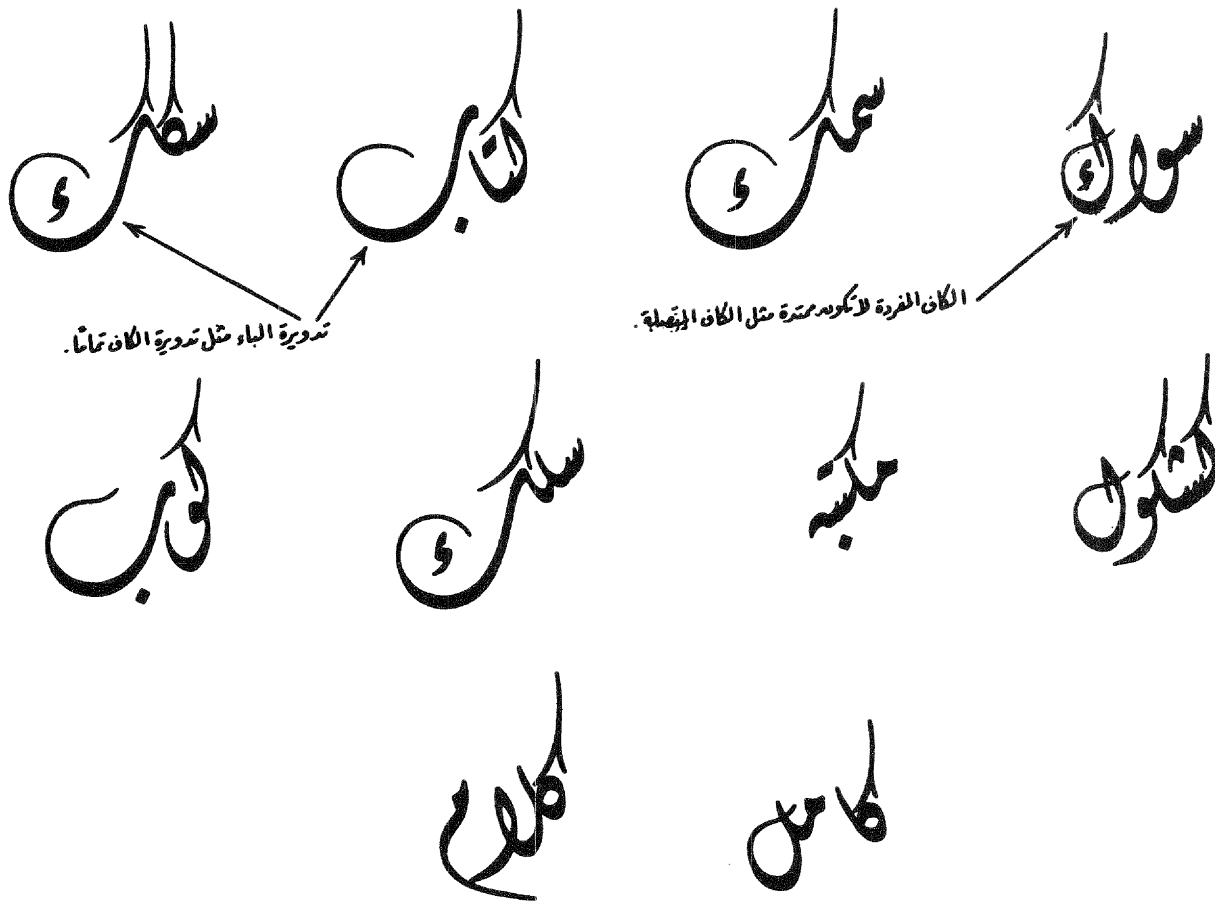 سواك سمك كتاب سكك
الكاف المفردة لا تكون ممتدة مثل الكاف المتصلة.
تدويرة الباء مثل تدويرة الكاف تمامًا.
كشكول مكتبه سلك كوب
كامل كلام